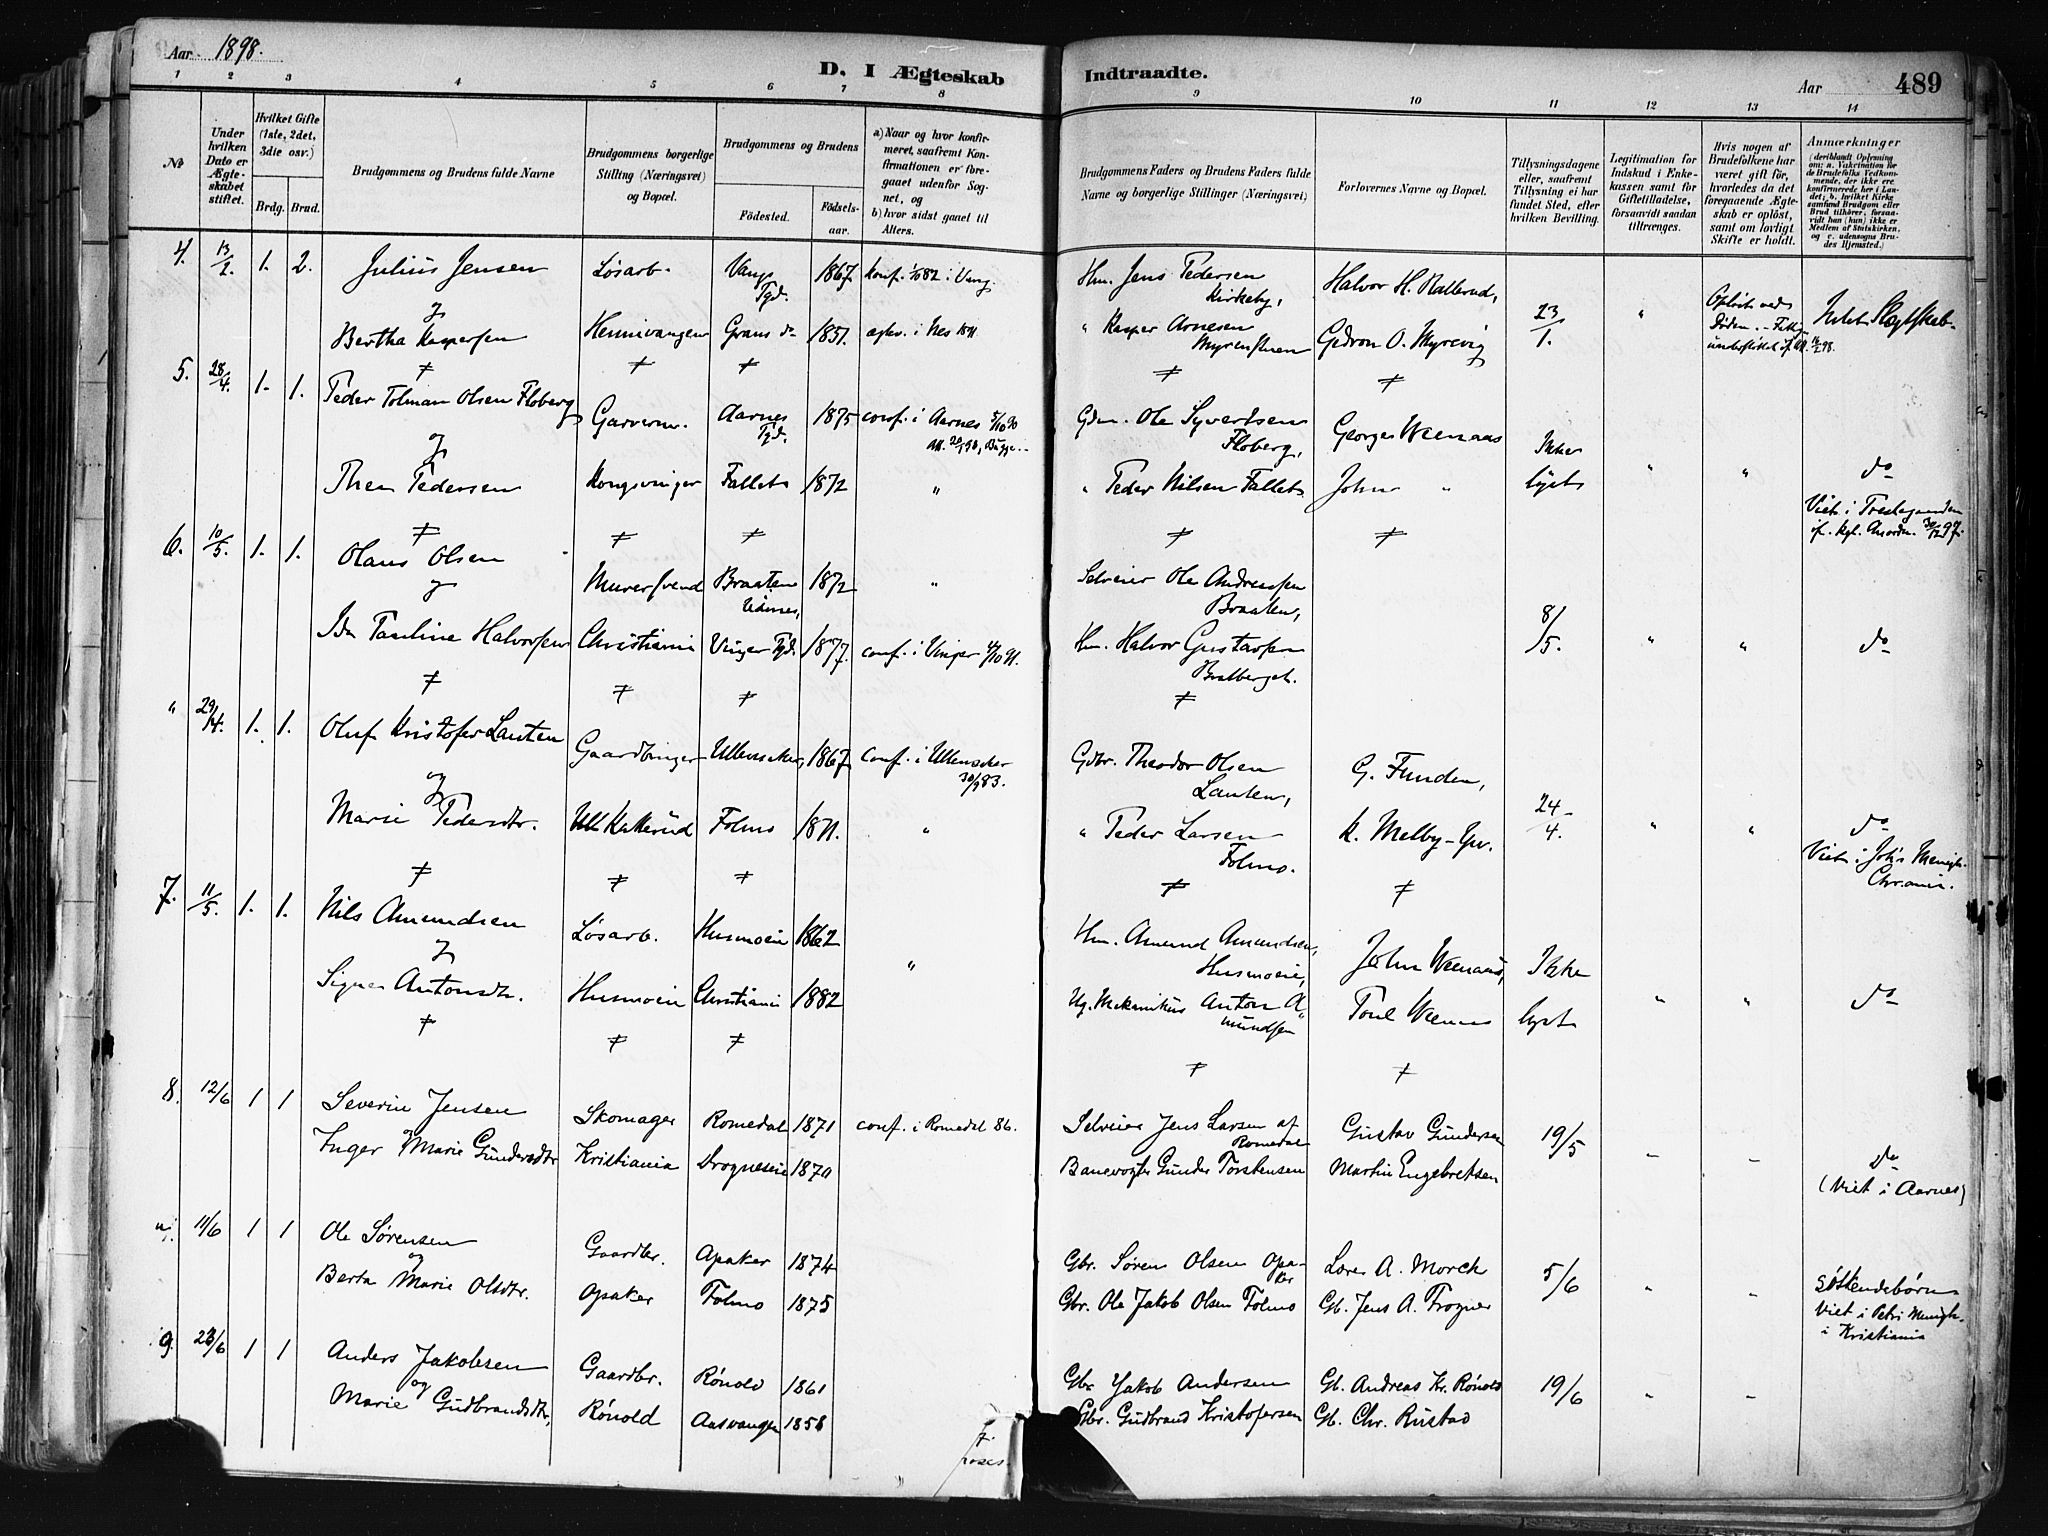 Aar 1898.
D. I Ægteskab Indtraadte.
Aar 489
1 2 3 4 5 6 7 8 9 10 11 12 13 14
No
Under hvilken Dato er Ægteskabet stiftet.
Hvilket Gifte (1ste, 2det, 3die osv.)
Brdg. Brud.
Brudgommens og Brudens fulde Navne
Brudgommens borgerlige Stilling (Næringsvei) og Bopæl.
Brudgommens og Brudens
Fødested.
Fødselsaar.
a) Naar og hvor konfirmeret, saafremt Konfirmationen er foregaaet udenfor Sognet, og
b) hvor sidst gaaet til Alters.
Brudgommens Faders og Brudens Faders fulde Navne og borgerlige Stillinger (Næringsvei)
Forlovernes Navne og Bopæl.
Tillysningsdagene eller, saafremt Tillysning ei har fundet Sted, efter hvilken Bevilling.
Legitimation for Indskud i Enkekassen samt for Giftetilladelse, forsaavidt saadan tiltrænges.
Hvis nogen af Brudefolkene har været gift før, hvorledes da det foregaaende Ægteskab er opløst, samt om lovligt Skifte er holdt.
Anmærkninger
(deriblandt Oplysning om: a. Vakcination for de Brudefolks Vedkommende, der ikke ere konfirmerede her i Landet; b. hvilket Kirkesamfund Brudgom eller Brud tilhører, forsaavidt han (hun) ikke er Medlem af Statskirken, og c. udensogns Brudes Hjemsted.)
4. 13/2. 1. 2. Julius Jensen Løsarb. Vangs Pgd. 1867 konf. 1/10 82 i Vang. Hm. Jens Pedersen Kirkeby, Halvor H. Rallerud, 23/1. " Opløst ved Døden. Intet Slegtskab.
og
Bertha Kaspersen Hennivangen Grans do 1851 i Nes " Kasper Arnesen O. Myrevig
5. 28/4. 1. 1. Peder Tolman Olsen Floberg Garversv. Aarnes Pgd. 1875 conf. i Aarnes 5/10 90 Gdm. Ole Syvertsen Floberg, Georges Weenaas Ikke
og
Thea Pedersen Kongsvinger Fallet 1872 " " Peder Nilsen Fallet John " lyst " " do
Viet i
6. 10/5. 1. 1. Olaus Olsen Murersvend Braaten Udnes, 1872 " Selveier Ole Andreassen Braaten, 8/5.
og
Ida Pauline Halvorsen Christiania Vinger Pgd. 1877. conf. i Vinger 4/10 91. Hm. Halvor Gustavsen Bratberget. " " do
" 29/4. 1. 1. Oluf Kristofer Lauten Gaardbruger Ullensaker 1867 conf. i Ullensaker 30/9 83. Gdbr. Theodor Olsen Lauten, G. Funden, 24/4.
og
Marie Pedersdtr. Kakkerud Folmo 1871. " " Peder Larsen Folmo. K. Melby " " do
Viet i Joh's Menigh. Chr.ania.
7. 11/5. 1. 1. Nils Amundsen Løsarb. Husmoeie 1862 Hm. Amund Amundsen, Husmoeie, John Weenaas, Ikke
og "
Signe Antonsdtr. Husmoeie Christiania 1882 Ug. Mekanikus Anton Amundsen Poul Weenaas lyst " " do
8. 12/6 1 1 Severin Jensen Skomager Romedal 1871 conf. i Romedal 86. Selveier Jens Larsen af Romedal Gustav Gundersen 19/5
og
Inger Marie Gundersdtr Kristiania Drogneseie 1870 Banevogter Gunder Torstensen Martin Engebretsen do
(Viet i Aarnes)
11/6 1 1 Ole Sørensen Gaardbr. Opaker 1874 Gbr. Søren Olsen Opaker Lærer A. Morck 5/6 " "
og
Berta Marie Olsdtr. Opaker Folmo 1875 Gbr. Ole Jakob Olsen Folmo Gb. Jens A. Trogner Søskendebørn
Viet i Petri Menigh. i Kristiania
9. 23/6 1 1 Anders Jakobsen Gaardbr. Rønold 1861 Gbr Jakob Andersen Gb. Andreas Kr. Rønold 19/6
og
Marie Gudbrandsdtr, Rønold Aasvangen 1858 Gbr. Gudbrand Kristofersen Gb. Chr. Rustad